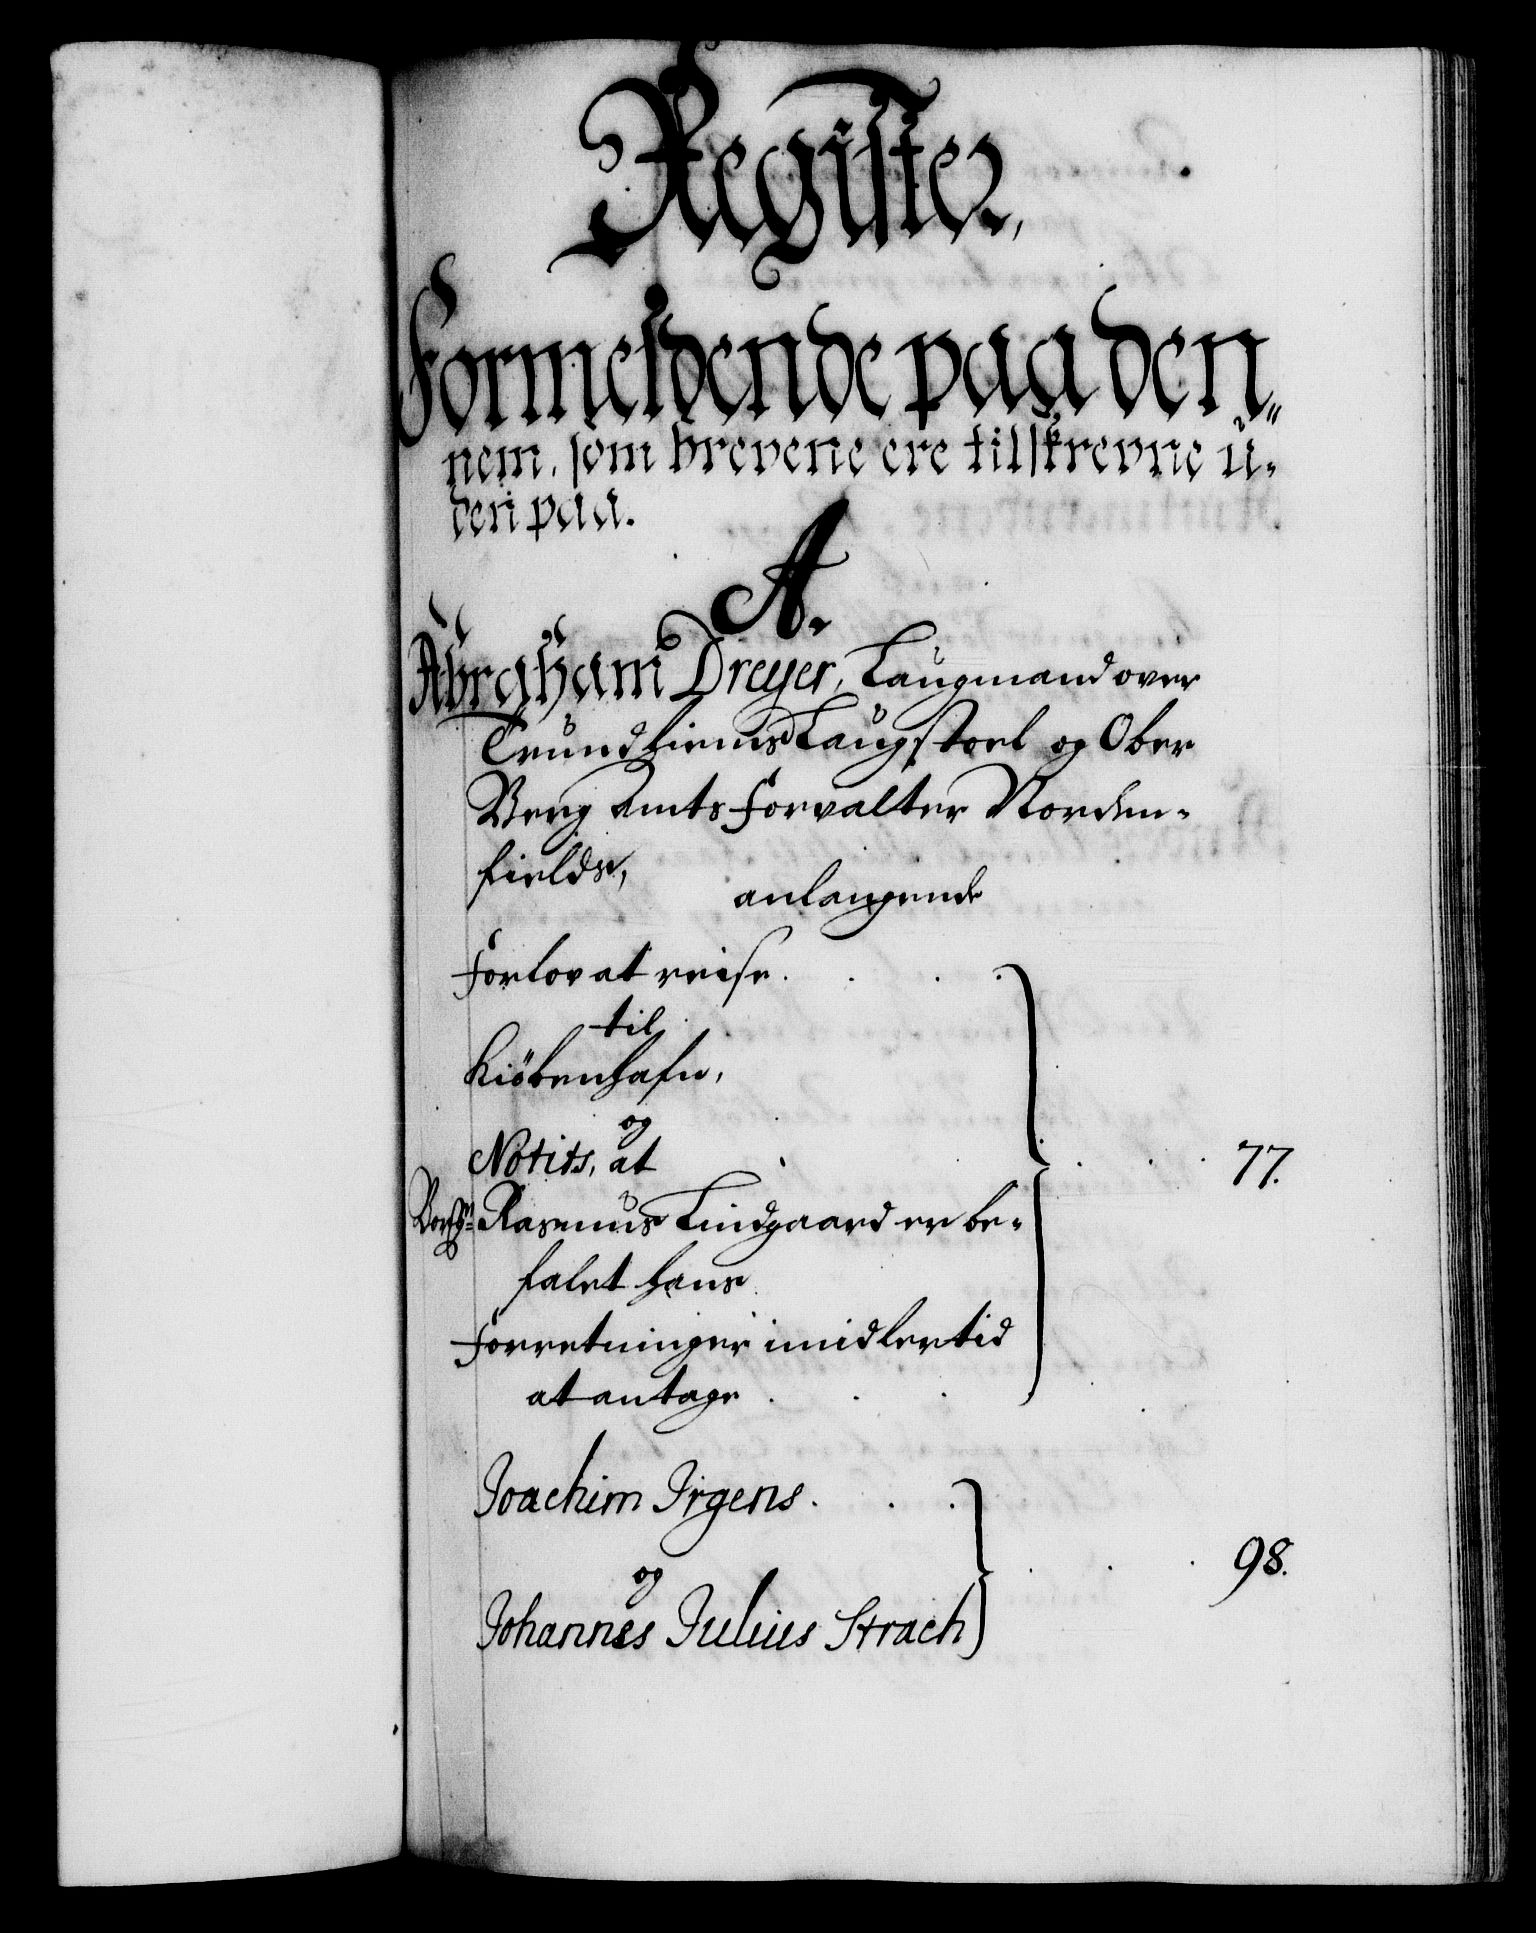 Register,
Formeldende paa den„
nem, som brevene ere tilskrevne u-
den paa.
A.
Abraham Dreyer, Laugmand over
Trundhiems Laugstoel og Ober
Berg Amts Forvalter Norden-
fields,
anlangende
Forlov at reise . . . .
til
Kiöbenhafn,
og
Notits, at
Rasmus Lindgaard er be-
falet hans
Forretninger imidlertid
at antage . . .
77.
Joachim Irgens . . .
og
Johannes Julius Strach
98.